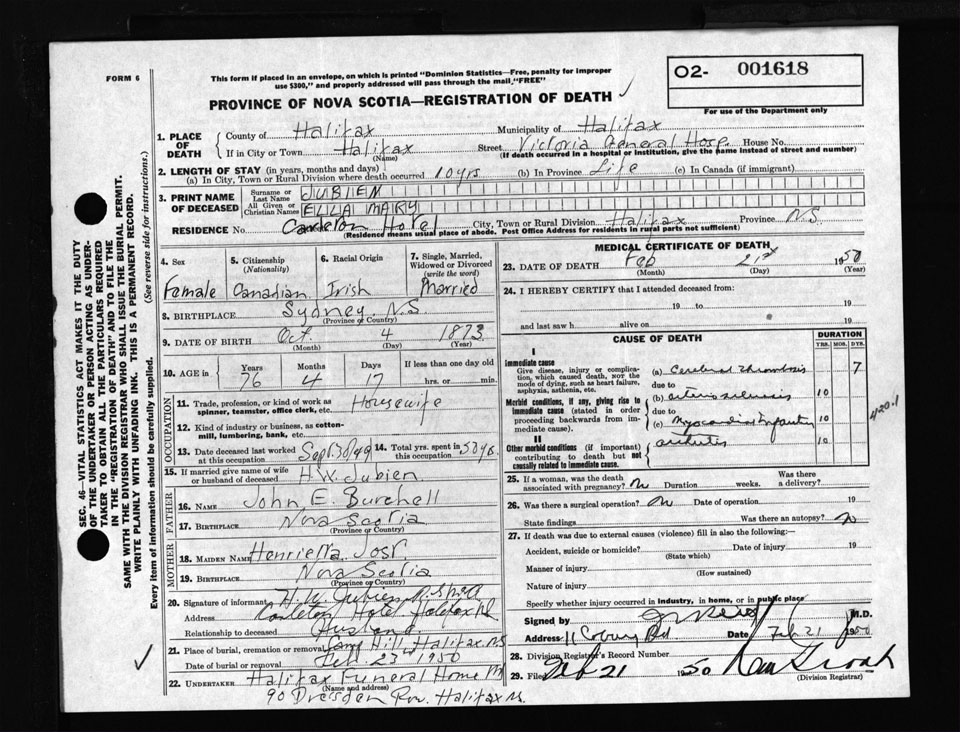 FORM 6
This form if placed in an envelope, on which is printed "Dominion Statistics—Free, penalty for improper
use $300," and properly addressed will pass through the mail, "FREE"
O2- 001618
For use of the Department only
PROVINCE OF NOVA SCOTIA—REGISTRATION OF DEATH
1. PLACE OF DEATH
County of Halifax Municipality of Halifax
If in City or Town Halifax (Name) Street Victoria General Hosp. House No.
(If death occurred in a hospital or institution, give the name instead of street and number)
2. LENGTH OF STAY (in years, months and days)
(a) In City, Town or Rural Division where death occurred 10 yrs (b) In Province Life (c) In Canada (if immigrant)
3. PRINT NAME OF DECEASED
Surname or Last Name JUBIEN
All Given or Christian Names ELLA MARY
RESIDENCE No. Carleton Hotel City, Town or Rural Division Halifax Province N.S.
(Residence means usual place of abode. Post Office Address for residents in rural parts not sufficient)
4. Sex
Female
5. Citizenship (Nationality)
Canadian
6. Racial Origin
Irish
7. Single, Married, Widowed or Divorced (write the word)
Married
8. BIRTHPLACE Sydney N.S.
(Province or Country)
9. DATE OF BIRTH Oct. 4 1873
(Month) (Day) (Year)
10. AGE Years 76 Months 4 Days 17 If less than one day old
hrs. or min.
OCCUPATION
11. Trade, profession, or kind of work as spinner, teamster, office clerk, etc. Housewife
12. Kind of industry or business, as cotton-mill, lumbering, bank, etc.
13. Date deceased last worked at this occupation Sept 30/49 14. Total yrs. spent in this occupation 50 yrs.
15. If married give name of wife or husband of deceased H.W. Jubien
FATHER
16. NAME John E. Burchell
17. BIRTHPLACE Nova Scotia
(Province or Country)
MOTHER
18. MAIDEN NAME Henrietta Jost
19. BIRTHPLACE Nova Scotia
(Province or Country)
20. Signature of informant H. W. Jubien
Address Carleton Hotel Halifax NS
Relationship to deceased Husband
21. Place of burial, cremation or removal Camp Hill, Halifax NS
Date of burial or removal Feb. 23 1950
22. UNDERTAKER Halifax Funeral Home
(Name and address)
90 Dresden Row. Halifax NS.
MEDICAL CERTIFICATE OF DEATH
23. DATE OF DEATH Feb 21st 1950
(Month) (Day) (Year)
24. I HEREBY CERTIFY that I attended deceased from:
19 to 19
and last saw h alive on 19
CAUSE OF DEATH
DURATION
YRS. MOS. DYS.
I
Immediate cause
Give disease, injury or complication, which caused death, not the mode of dying, such as heart failure, asphyxia, asthenia, etc.
(a) Cerebral thrombosis 7
due to
Morbid conditions, if any, giving rise to immediate cause (stated in order proceeding backwards from immediate cause).
(b) arteriosclerosis 10
due to
(c) Myocardial Infarction 10
420.1
II
Other morbid conditions (if important) contributing to death but not causally related to immediate cause.
arthritis 10
25. If a woman, was the death associated with pregnancy? No Duration weeks. Was there a delivery?
26. Was there a surgical operation? No Date of operation 19
State findings Was there an autopsy? No
27. If death was due to external causes (violence) fill in also the following:—
Accident, suicide or homicide? Date of injury 19
(State which)
Manner of injury
(How sustained)
Nature of injury
Specify whether injury occurred in industry, in home, or in public place
Signed by M.D.
Address 11 Coburg Rd Date Feb 21 1950
28. Division Registrar's Record Number
29. Filed Feb 21 1950
(Division Registrar)
SEC. 46—VITAL STATISTICS ACT MAKES IT THE DUTY
OF THE UNDERTAKER OR PERSON ACTING AS UNDER-
TAKER TO OBTAIN ALL THE PARTICULARS REQUIRED
IN THE "REGISTRATION OF DEATH" AND TO FILE THE
SAME WITH THE DIVISION REGISTRAR WHO SHALL ISSUE THE BURIAL PERMIT.
WRITE PLAINLY WITH UNFADING INK. THIS IS A PERMANENT RECORD.
Every item of information should be carefully supplied. (See reverse side for instructions.)